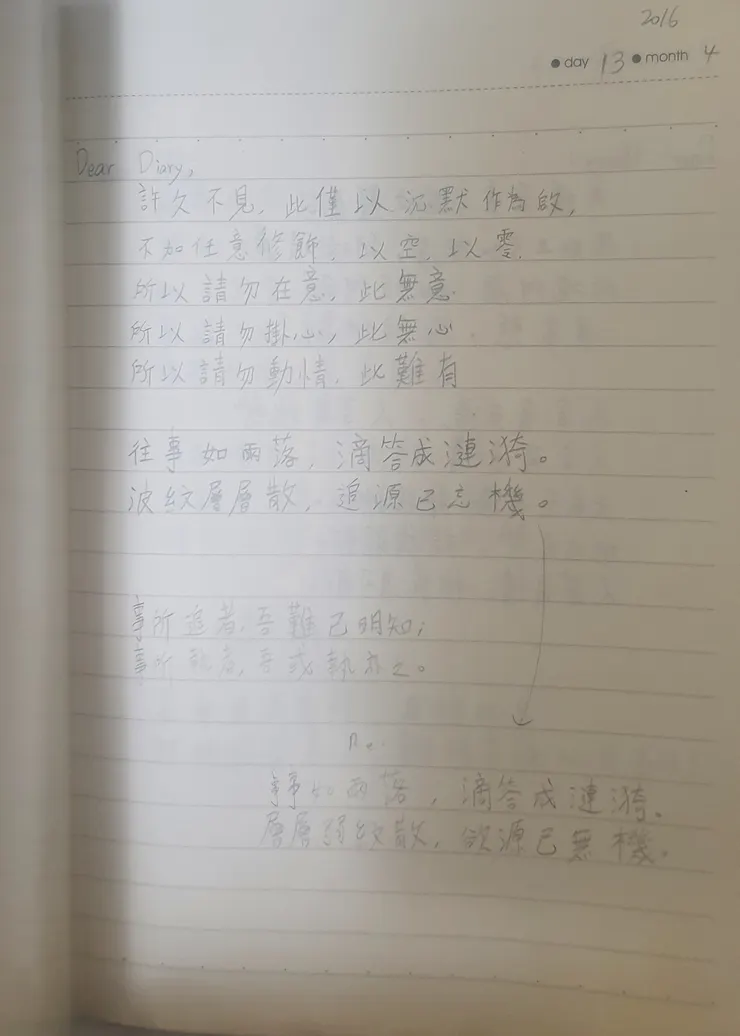 2016
● day 13 ● month 4
Dear Diary,
許久不見，此僅以沉默作為啟，
不加任意修飾，以空，以零．
所以請勿在意，此無意．
所以請勿掛心，此無心．
所以請勿動情，此難有
往事如雨落，滴答成漣漪。
波紋層層散，追源已忘機。
事所追者，吾難已明知；
事所執者，吾或執之。
Re.
事事如雨落，滴答成漣漪．
層層弱紋散，欲源已無機．